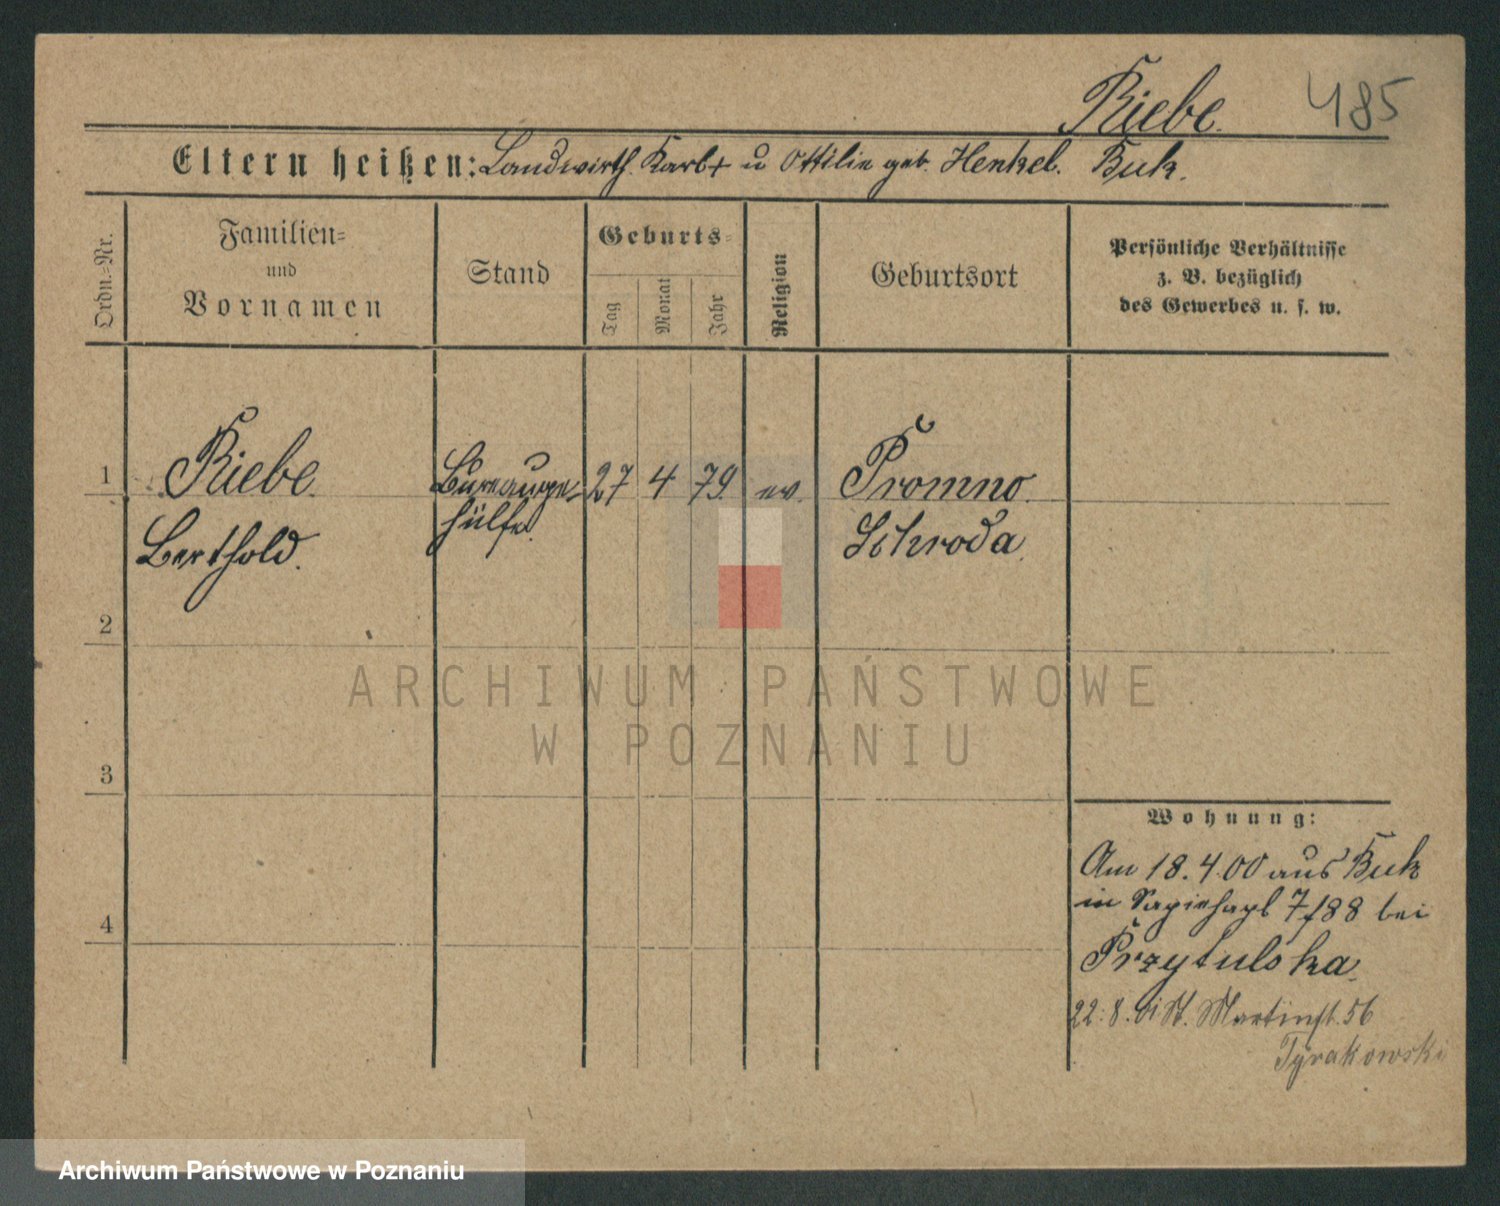 Riebe. 485
Eltern heißen: Landwirth Karl + u Ottilie geb. Henkel. Buk.
Ordn.=Nr.
Familien=
und
Vornamen
Stand
Geburts=
Tag
Monat
Jahr
Religion
Geburtsort
Persönliche Verhältnisse
z. B. bezüglich
des Gewerbes u. s. w.
1 Riebe Bureauge= 27 4 79. ev. Promno
Berthold. hülfe. Schroda
2
3
4
Wohnung:
Am 18.4.00 aus Buk
in Sapiehapl 7/88 bei
Przytulska
22.8. St. Martinst. 56
Tyrakowski
ARCHIWUM PAŃSTWOWE
W POZNANIU
Archiwum Państwowe w Poznaniu